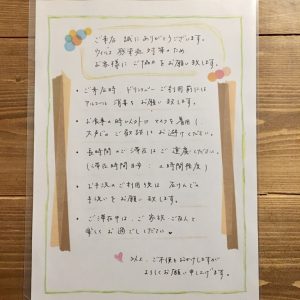 ご来店 誠にありがとうございます。
ウイルス 感染症 対策のため
お客様に ご協力を お願い致します。
・ご来店時 ドリンクバーご利用前には
アルコール 消毒を お願い致します。
・お食事の時以外は マスクを着用し
大声での ご歓談は お避けください。
・長時間の ご滞在は ご遠慮ください。
(ご滞在時間目安: 2時間程度)
・お手洗のご利用後は 石けんでの
手洗いを お願い致します。
・ご滞在中は、ご家族・ご友人と
楽しく お過ごしください
ご不便をおかけしますが
よろしくお願い申し上げます。